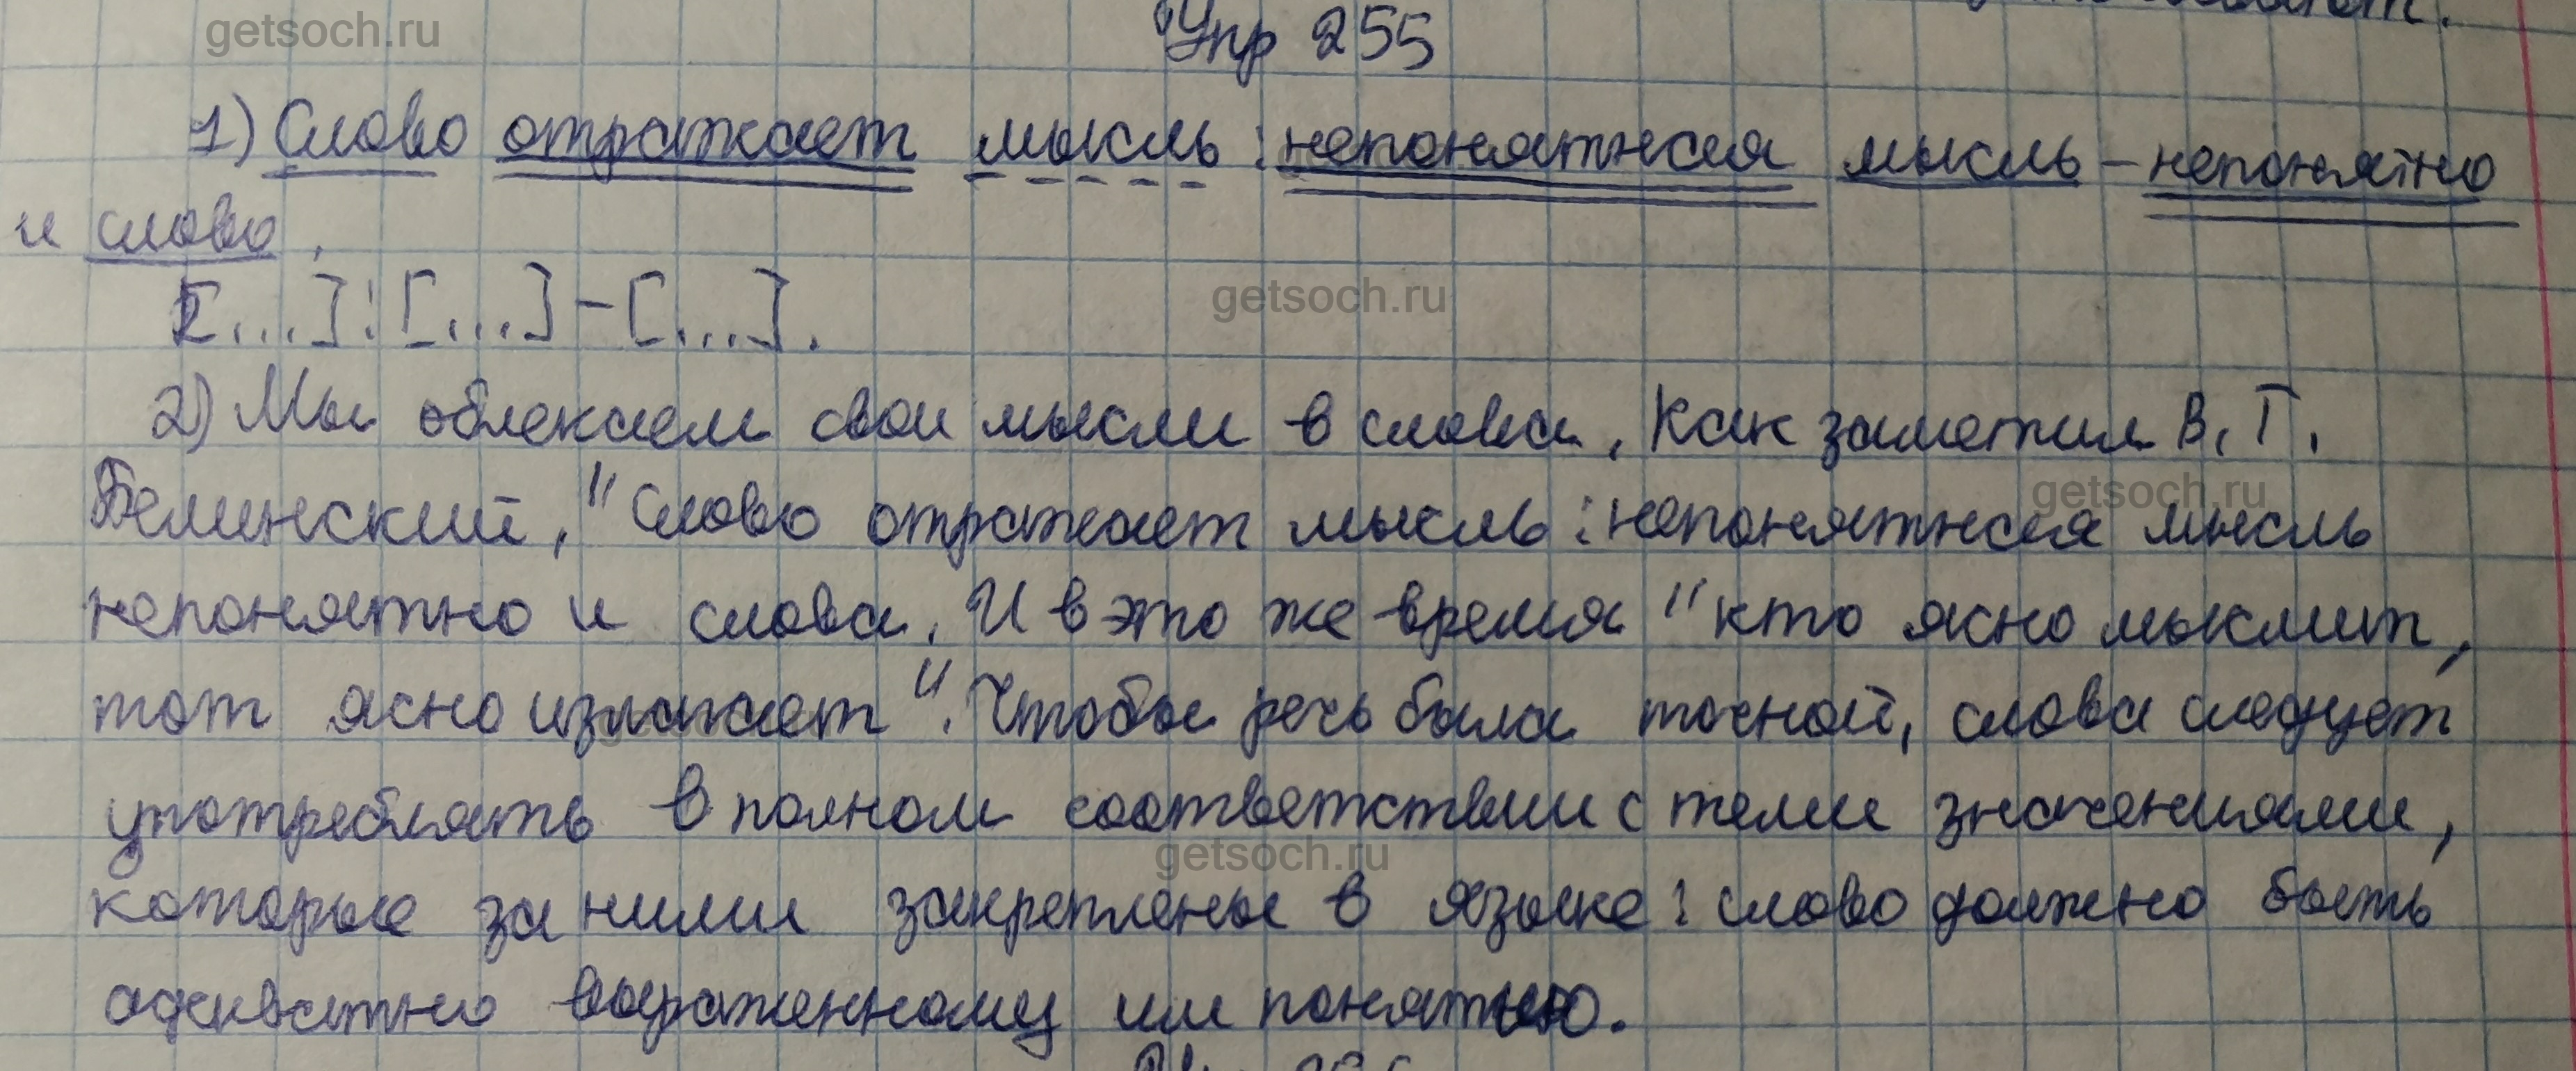 Упр 255
1) Слово отражает мысль : непонятная мысль – непонятно
и слово.
[...] : [...] – [...].
2) Мы облекаем свои мысли в слова. Как заметил В. Г.
Белинский, "Слово отражает мысль : непонятная мысль
непонятно и слова. И в это же время "кто ясно мыслит,
тот ясно излагает". Чтобы речь была точной, слова следует
употреблять в полном соответствии с теми значениями,
которые за ними закреплены в языке : слово должно быть
адекватно выраженному им понятию.
getsoch.ru
getsoch.ru
getsoch.ru
getsoch.ru